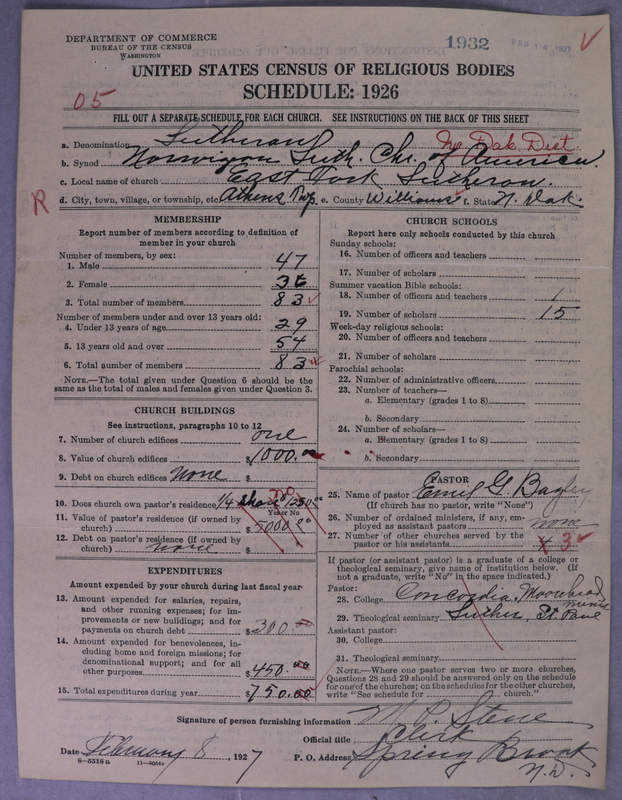 DEPARTMENT OF COMMERCE
BUREAU OF THE CENSUS
WASHINGTON
1932
FEB 14 1927
UNITED STATES CENSUS OF RELIGIOUS BODIES
SCHEDULE: 1926
05
FILL OUT A SEPARATE SCHEDULE FOR EACH CHURCH. SEE INSTRUCTIONS ON THE BACK OF THIS SHEET
a. Denomination Lutheran No. Dak. Dist
b. Synod Norwegian Luth. Chr. of America.
c. Local name of church East Fork Lutheran.
R
d. City, town, village, or township, etc. Athens Twp. e. County Williams f. State N. Dak.
MEMBERSHIP
Report number of members according to definition of member in your church
Number of members, by sex:
1. Male 47
2. Female 36
3. Total number of members 83
Number of members under and over 13 years old:
4. Under 13 years of age 29
5. 13 years old and over 54
6. Total number of members 83
NOTE.—The total given under Question 6 should be the same as the total of males and females given under Question 3.
CHURCH BUILDINGS
See instructions, paragraphs 10 to 12
7. Number of church edifices one
8. Value of church edifices $1000.00
9. Debt on church edifices None $
10. Does church own pastor's residence 1/4 share no 1250.00
Yes or No
11. Value of pastor's residence (if owned by church) $5000.00
12. Debt on pastor's residence (if owned by church) none $
EXPENDITURES
Amount expended by your church during last fiscal year
13. Amount expended for salaries, repairs, and other running expenses; for improvements or new buildings; and for payments on church debt $300.00
14. Amount expended for benevolences, including home and foreign missions; for denominational support; and for all other purposes $450.00
15. Total expenditures during year $750.00
CHURCH SCHOOLS
Report here only schools conducted by this church
Sunday schools:
16. Number of officers and teachers
17. Number of scholars
Summer vacation Bible schools:
18. Number of officers and teachers 1
19. Number of scholars 15
Week-day religious schools:
20. Number of officers and teachers
21. Number of scholars
Parochial schools:
22. Number of administrative officers
23. Number of teachers—
a. Elementary (grades 1 to 8)
b. Secondary
24. Number of scholars—
a. Elementary (grades 1 to 8)
b. Secondary
PASTOR
25. Name of pastor Emil G. Bagley
(If church has no pastor, write "None")
26. Number of ordained ministers, if any, employed as assistant pastors none
27. Number of other churches served by the pastor or his assistants 4 3
If pastor (or assistant pastor) is a graduate of a college or theological seminary, give name of institution below. (If not a graduate, write "No" in the space indicated.)
Pastor:
28. College Concordia, Moorehead Minn
29. Theological seminary Luther, St. Paul
Assistant pastor:
30. College
31. Theological seminary
NOTE.—Where one pastor serves two or more churches, Questions 28 and 29 should be answered only on the schedule for one of the churches; on the schedules for the other churches, write "See schedule for church."
Signature of person furnishing information
Official title Clerk
Date February 8, 1927 P. O. Address Spring Brook N.D.
8—5318a 11—